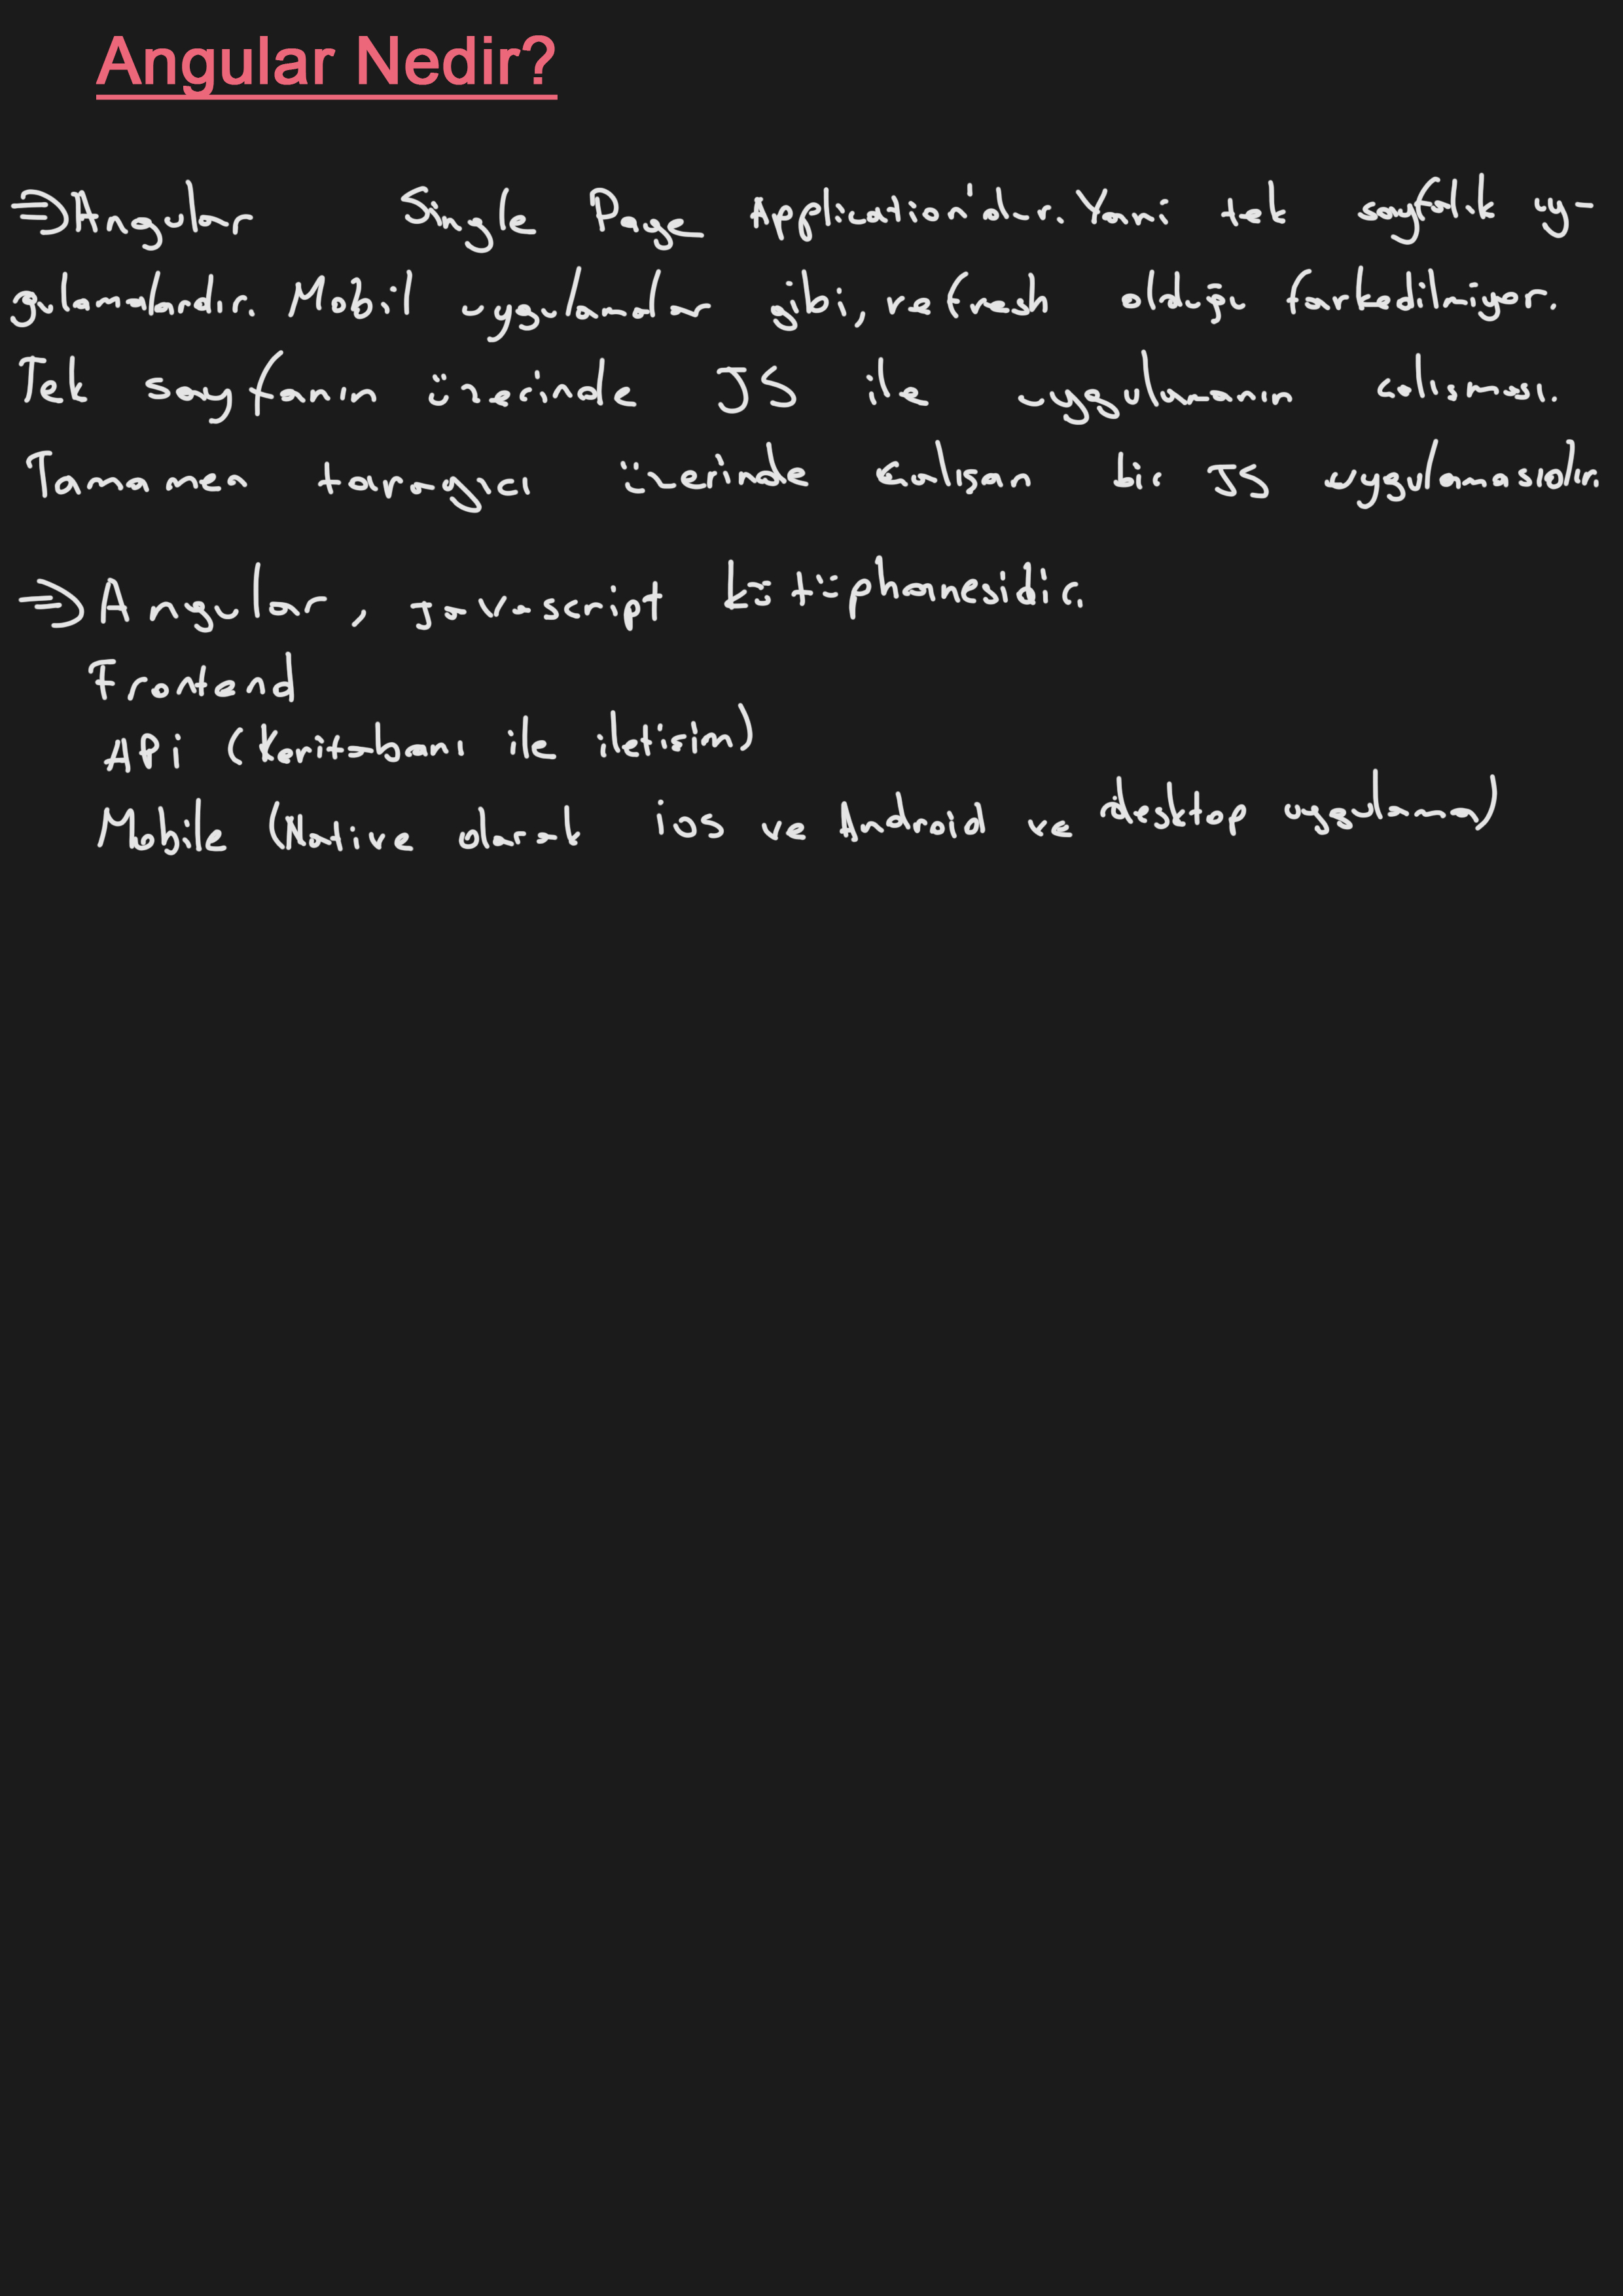 Angular Nedir?
⇒ Angular Single Page Application'dır. Yani tek sayfalık uy-
gulamalardır. Mobil uygulamalar gibi, refresh olduğu farkedilmiyor.
Tek sayfanın üzerinde JS ile uygulamanın çalışması.
Tamamen tarayıcı üzerinde çalışan bir JS uygulamasıdır.
⇒ Angular, javascript kütüphanesidir.
Frontend
Api (Veritabanı ile iletişim)
Mobile (Native olarak ios ve Android ve desktop uygulama)